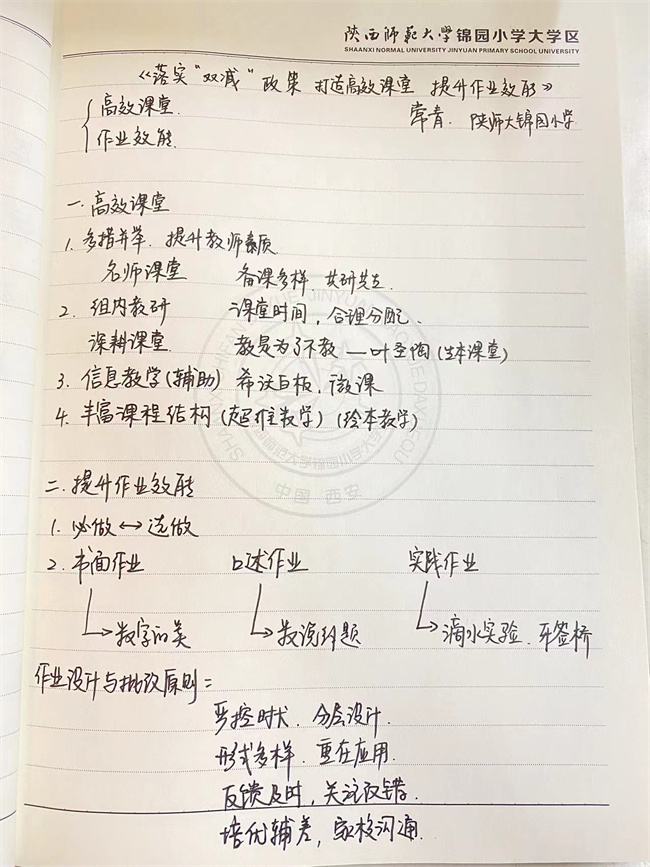 陕西师范大学锦园小学大学区
SHAANXI NORMAL UNIVERSITY JINYUAN PRIMARY SCHOOL UNIVERSITY
《落实“双减”政策 打造高效课堂 提升作业效能》
高效课堂.
作业效能.
常青. 陕师大锦园小学
一. 高效课堂
1. 多措并举. 提升教师素质
名师课堂 备课多样. 共研共生.
2. 组内教研 课堂时间, 合理分配.
深耕课堂. 教是为了不教 — 叶圣陶 (生本课堂)
3. 信息教学(辅助) 希沃白板, 微课
4. 丰富课程结构 (思维数学) (绘本教学)
中国 西安
二. 提升作业效能
1. 必做 ↔ 选做
2. 书面作业 口述作业 实践作业
数字的美 数说问题 滴水实验. 牙签桥
作业设计与批改原则:
严控时长. 分层设计.
形式多样. 重在应用.
反馈及时, 关注改错.
培优辅差, 家校沟通.